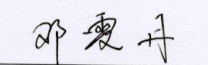 邓雯丹